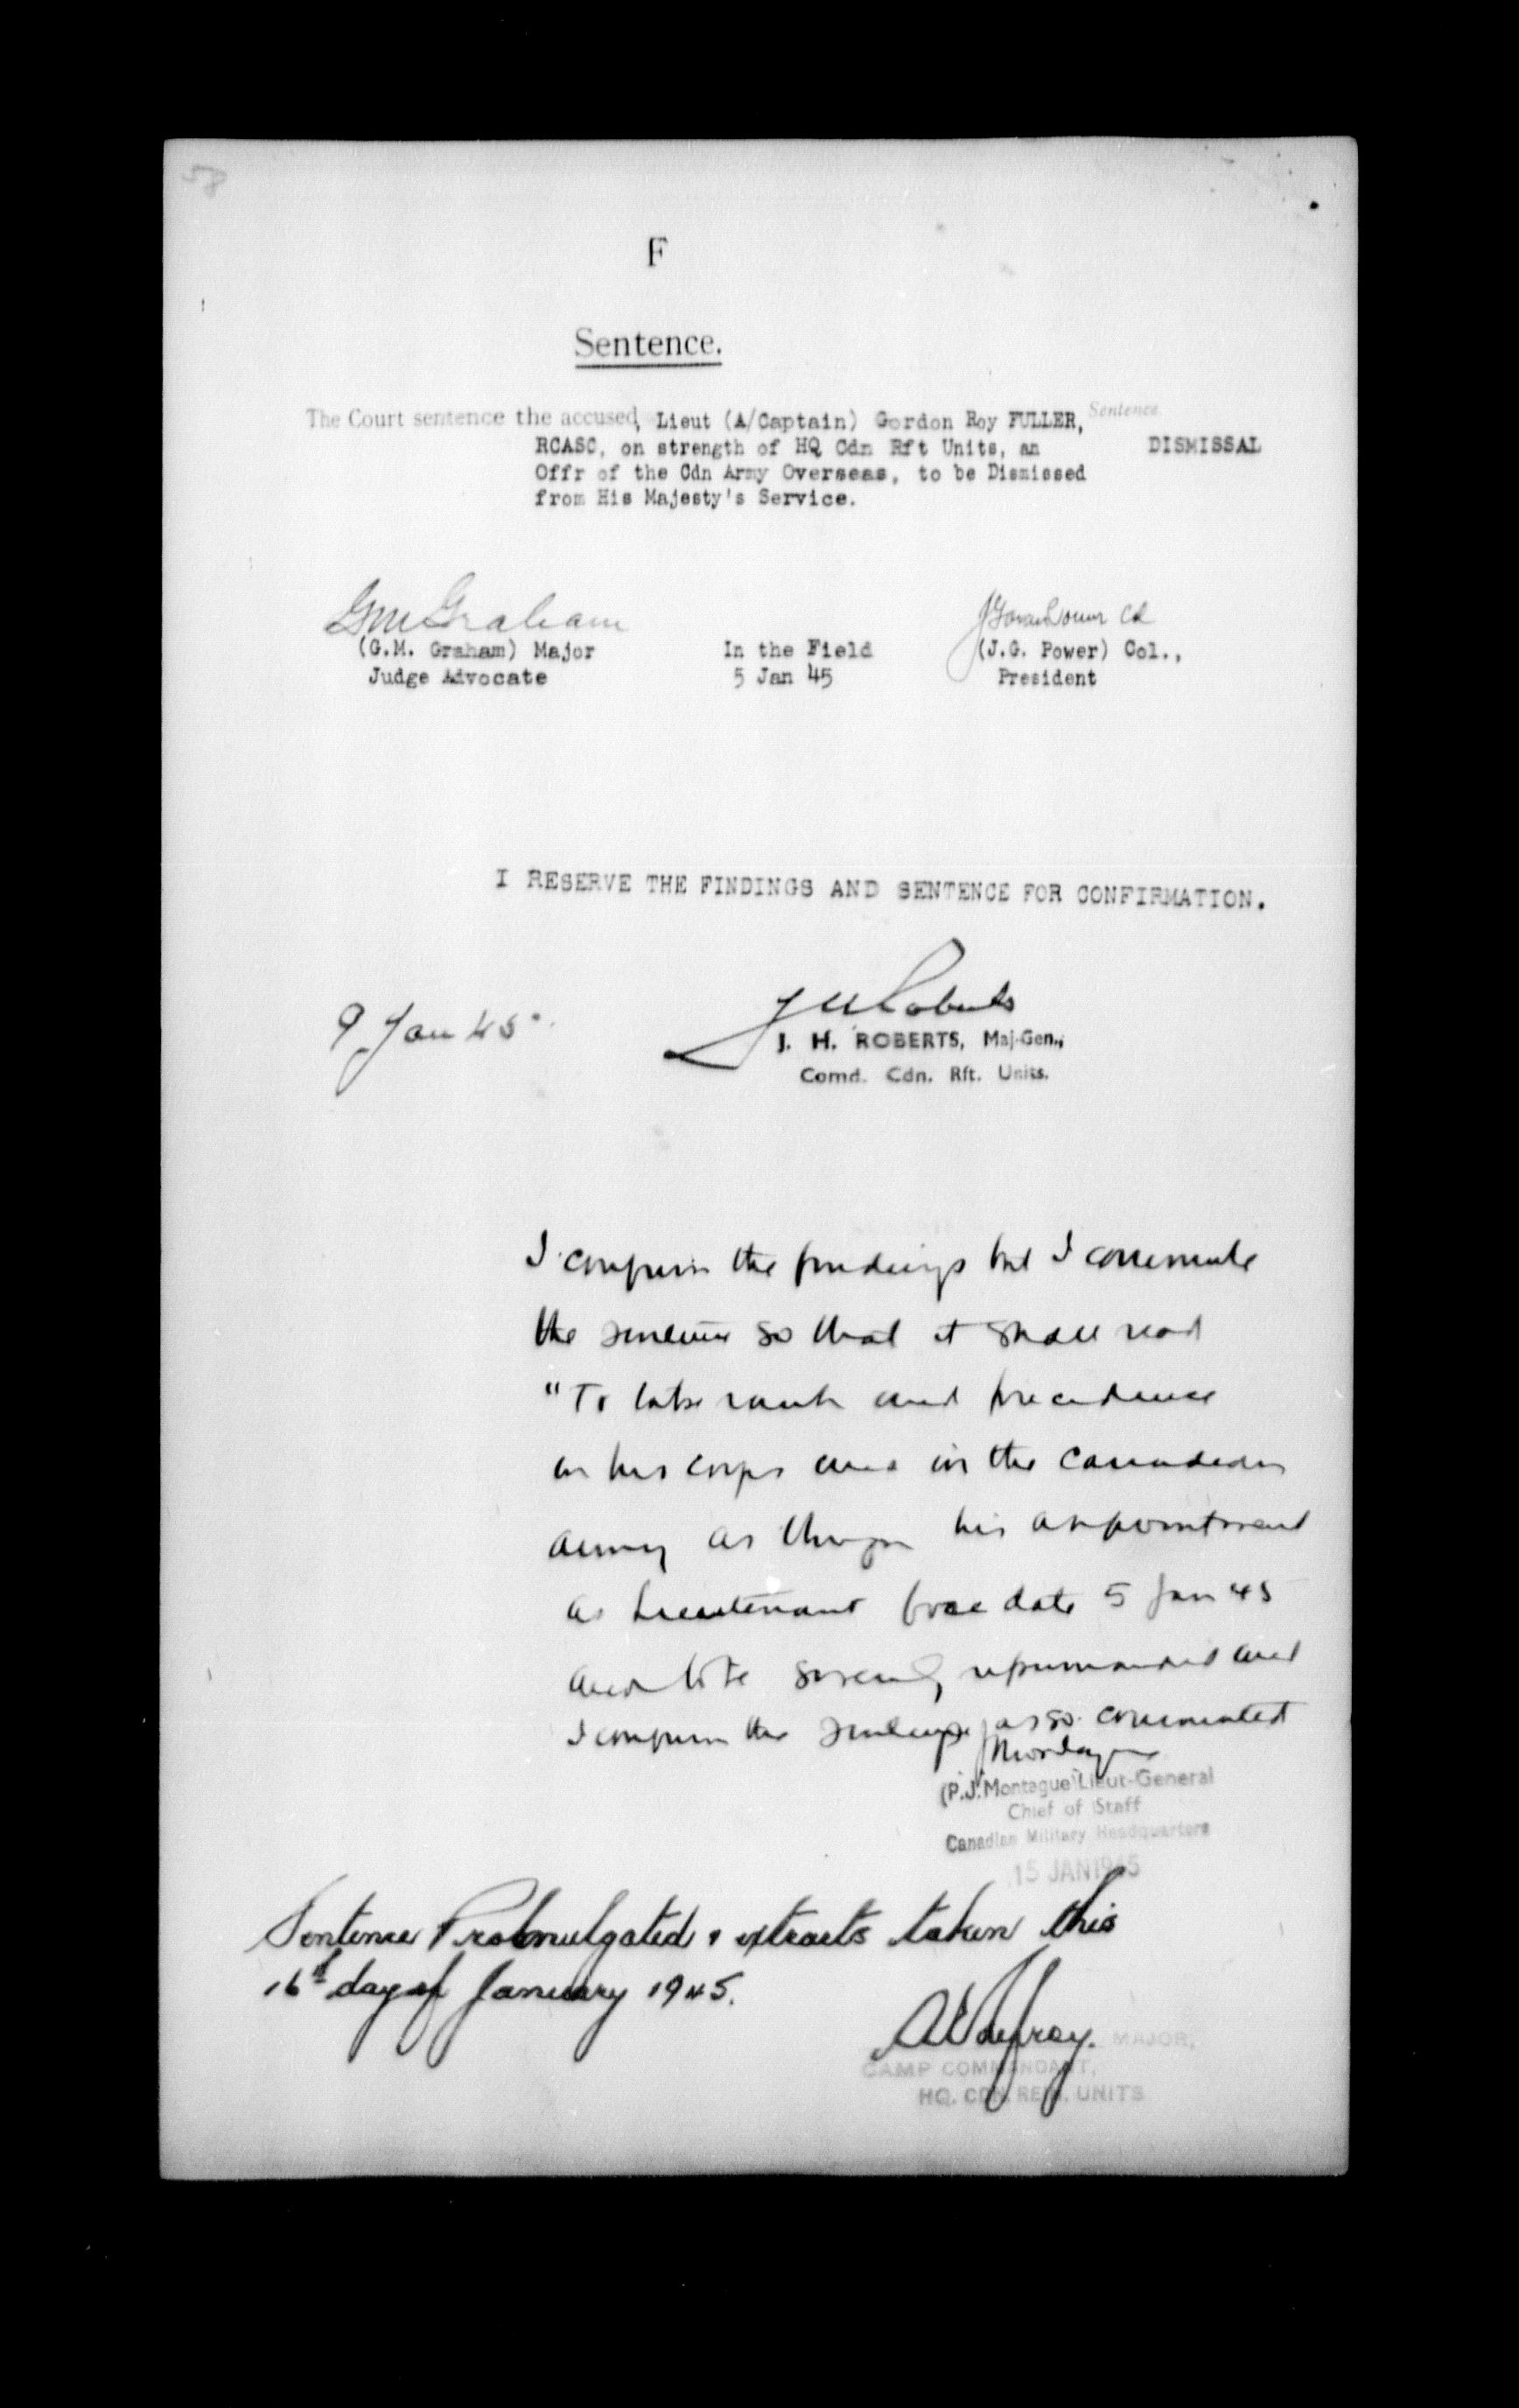 58
F
Sentence.
The Court sentence the accused, Lieut (A/Captain) Gordon Roy FULLER, Sentence
RCASC, on strength of HQ Cdn Rft Units, an DISMISSAL
Offr of the Cdn Army Overseas, to be Dismissed
from His Majesty's Service.
GM Graham
(G.M. Graham) Major In the Field (J.G. Power) Col.,
Judge Advocate 5 Jan 45 President
I RESERVE THE FINDINGS AND SENTENCE FOR CONFIRMATION.
9 Jan 45. J H Roberts
J. H. ROBERTS, Maj-Gen.,
Comd. Cdn. Rft. Units.
I confirm the findings but I commute
the sentence so that it shall read
"To take rank and precedence
in his corps and in the Canadian
Army as though his appointment
as Lieutenant bore date 5 Jan 45
and to be severely reprimanded and
I confirm the sentence as so commuted
(P.J. Montague) Lieut-General
Chief of Staff
Canadian Military Headquarters
15 JAN 1945
Sentence Promulgated & extracts taken this
16th day of January 1945.
MAJOR,
CAMP COMMANDANT,
HQ. CDN. REIN. UNITS